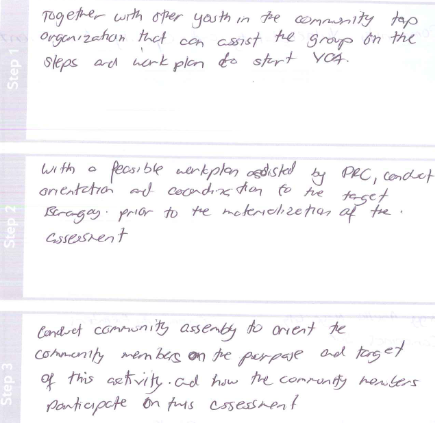 Step 1
Together with other youth in the community tap
organization that can assist the group on the
steps and work plan to start VCA.
Step 2
With a feasible workplan assisted by PRC, conduct
orientation and coordination to the target
Barangay. prior to the materialization of the.
assessment
Step 3
Conduct community assembly to orient the
community members on the purpose and target
of this activity. and how the community members
participate on this assessment